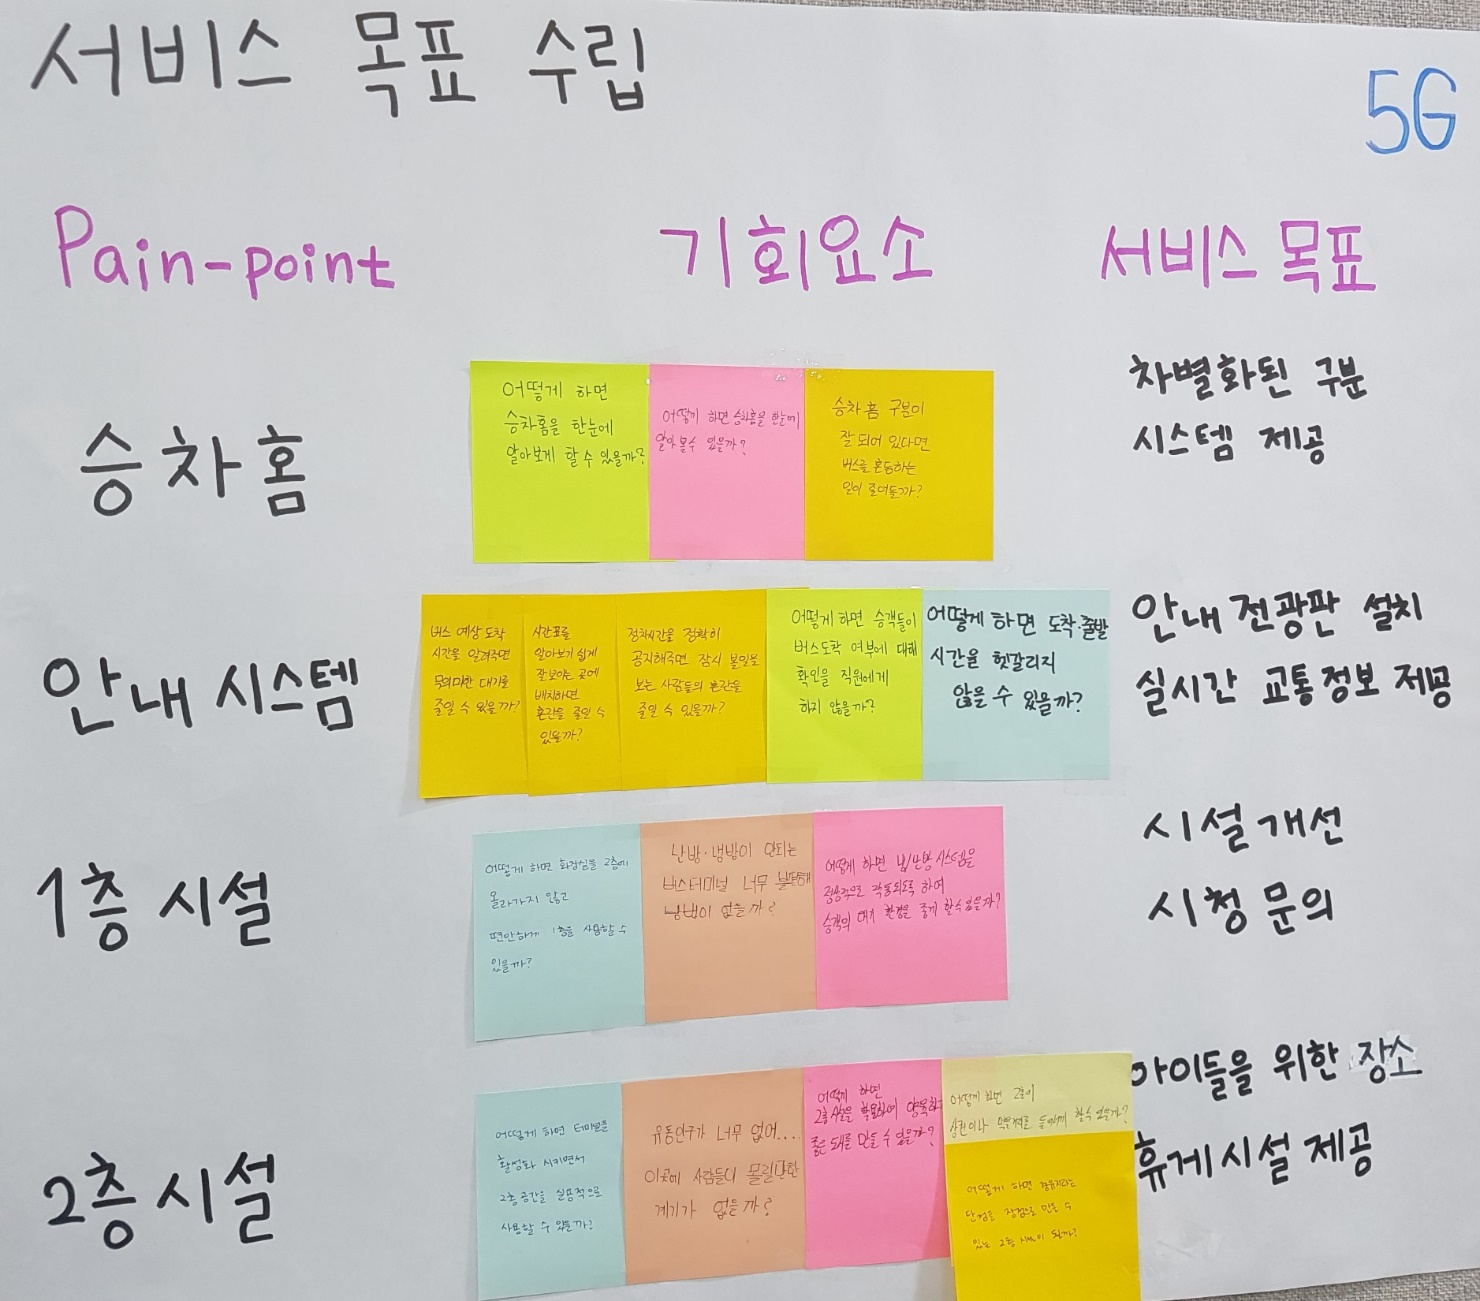 서비스 목표 수립
5G
Pain-point
기회요소
서비스 목표
승차홈
어떻게 하면
승차홈을 한눈에
알아보게 할 수 있을까?
어떻게 하면 승차홈을 한눈에
알아볼 수 있을까?
승차 홈 구분이
잘 되어 있다면
버스를 혼동하는
일이 줄어들까?
차별화된 구분
시스템 제공
안내 시스템
버스 예상 도착
시간을 알려주면
무의미한 대기를
줄일 수 있을까?
시간표를
알아보기 쉽게
잘 보이는 곳에
배치하면
혼란을 줄일 수
있을까?
정차시간을 정확히
공지해주면 잠시 볼일을
보는 사람들의 혼란을
줄일 수 있을까?
어떻게 하면 승객들이
버스도착 여부에 대해
확인을 직원에게
하지 않을까?
어떻게 하면 도착·출발
시간을 헷갈리지
않을 수 있을까?
안내 전광판 설치
실시간 교통정보 제공
1층 시설
어떻게 하면 화장실을 2층에
올라가지 않고
편안하게 1층을 사용할 수
있을까?
난방·냉방이 안되는
버스터미널 너무 불편해
방법이 없을까?
어떻게 하면 냉/난방 시스템을
정상적으로 작동되도록 하여
승객의 대기 환경을 좋게 할 수 있을까?
시설 개선
시청 문의
2층 시설
어떻게 하면 터미널을
활성화 시키면서
2층 공간을 실용적으로
사용할 수 있을까?
유동인구가 너무 없어....
이곳에 사람들이 몰릴만한
계기가 없을까?
어떻게 하면
2층 시설을 활용하여
좋은 만들 수 있을까?
어떻게 하면 2층이
상권이나 들어오게 할 수 있을까?
어떻게 하면
단점을 장점으로 만들 수
있는 2층 될까?
아이들을 위한 장소
휴게시설 제공